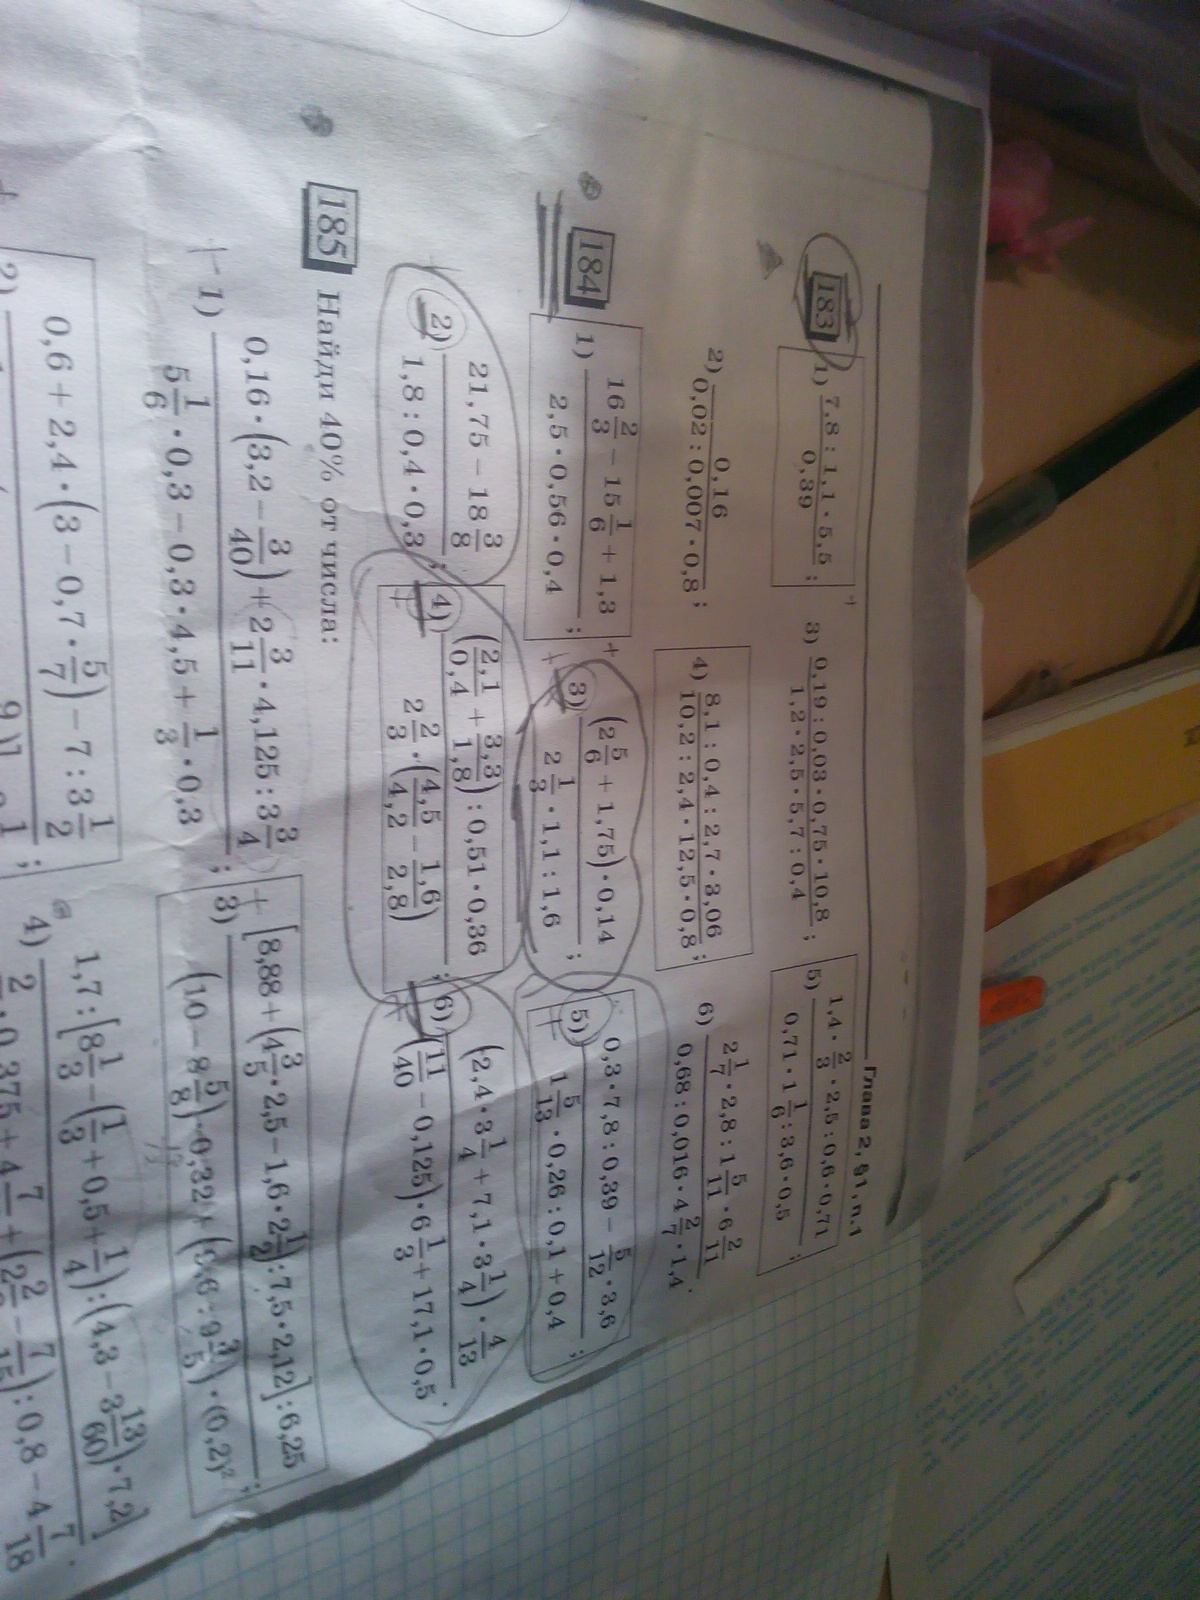 Глава 2, §1, п.1
183 1) (7,8 : 1,1 · 5,5)/(0,39); 3) (0,19 : 0,03 · 0,75 · 10,8)/(1,2 · 2,5 · 5,7 : 0,4); 5) (1,4 · 2/3 · 2,5 : 0,6 · 0,71)/(0,71 · 1 1/6 : 3,6 · 0,5);
2) (0,16)/(0,02 : 0,007 · 0,8); 4) (8,1 : 0,4 : 2,7 · 3,06)/(10,2 : 2,4 · 12,5 · 0,8); 6) (2 1/7 · 2,8 : 1 5/11 · 6 2/11)/(0,68 : 0,016 · 4 2/7 · 1,4).
184 1) (16 2/3 − 15 1/6 + 1,3)/(2,5 · 0,56 · 0,4); 3) ((2 5/6 + 1,75) · 0,14)/(2 1/3 · 1,1 : 1,6); 5) (0,3 · 7,8 : 0,39 − 5/12 · 3,6)/(1 5/13 · 0,26 : 0,1 + 0,4);
2) (21,75 − 18 3/8)/(1,8 : 0,4 · 0,3); 4) ((2,1/0,4 + 3,3/1,8) : 0,51 · 0,36)/(2 2/3 · (4,5/4,2 − 1,6/2,8)); 6) ((2,4 · 3 1/4 + 7,1 · 3 1/4) · 4/13)/((11/40 − 0,125) · 6 1/3 + 17,1 · 0,5).
185 Найди 40% от числа:
1) (0,16 · (3,2 − 3/40) + 2 3/11 · 4,125 : 3 3/4)/(5 1/6 · 0,3 − 0,3 · 4,5 + 1/3 · 0,3); 3) ([8,88 + (4 3/5 · 2,5 − 1,6 · 2 1/2) : 7,5 · 2,12] : 6,25)/((10 − 8 5/8) · 0,32 + (9,6 : 9 3/5) · (0,2)²);
2) 0,6 + 2,4 · (3 − 0,7 · 5/7) − 7 : 3 1/2; 4) 1,7 : [8 1/3 − (1/3 + 0,5 + 1/4) : (4,3 − 3 13/60) · 7,2]
0,375 + 4 7/ : 0,8 − 4 7/18